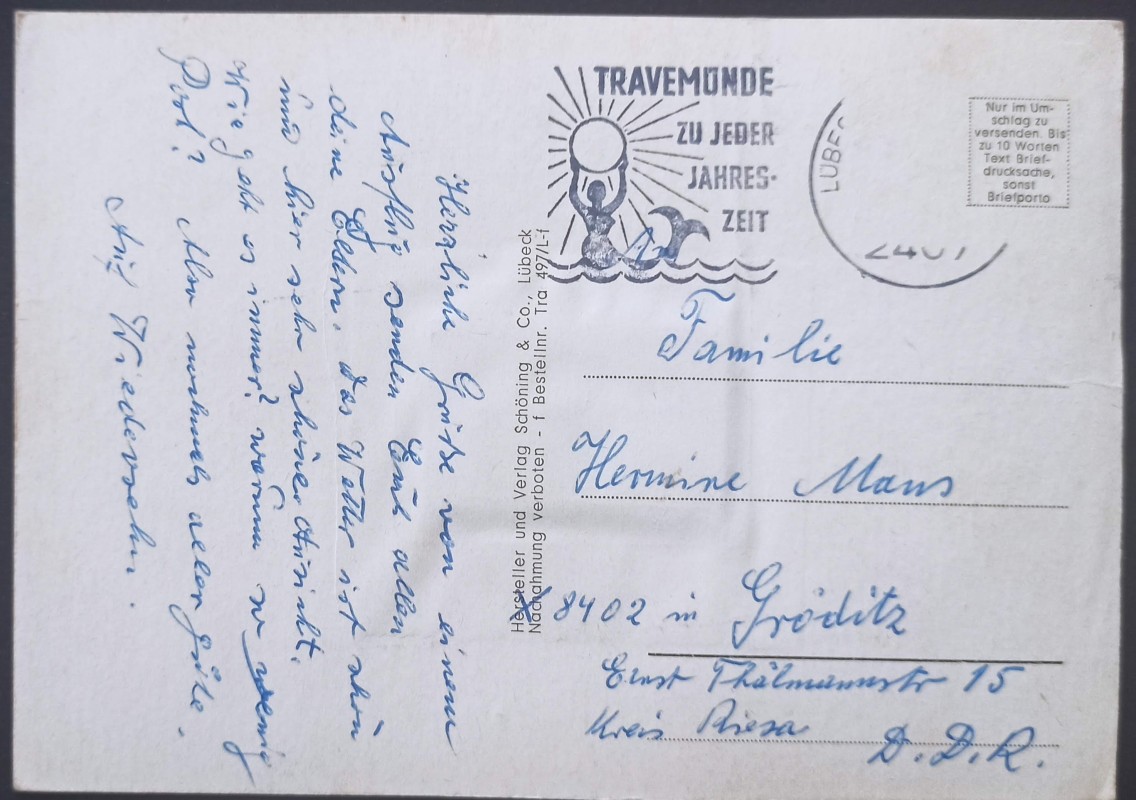 Herzliche Grüße von einem
Ausflug senden Euch allen
deine Eltern. Das Wetter ist schön
und hier sehr schöne Aussicht.
Wie geht es immer? Warum so wenig
Post? Nun nochmals alles gute.
Auf Wiedersehn.
Hersteller und Verlag Schöning & Co., Lübeck
Nachahmung verboten - f Bestellnr. Tra 497/L-f
TRAVEMÜNDE
ZU JEDER
JAHRES-
ZEIT
LÜBEC
2407
Nur im Um-
schlag zu
versenden. Bis
zu 10 Worten
Text Brief-
drucksache,
sonst
Briefporto
An
Familie
Hermine Maus
X 8402 in Gröditz
Ernst Thälmannstr 15
Kreis Riesa
D.D.R.